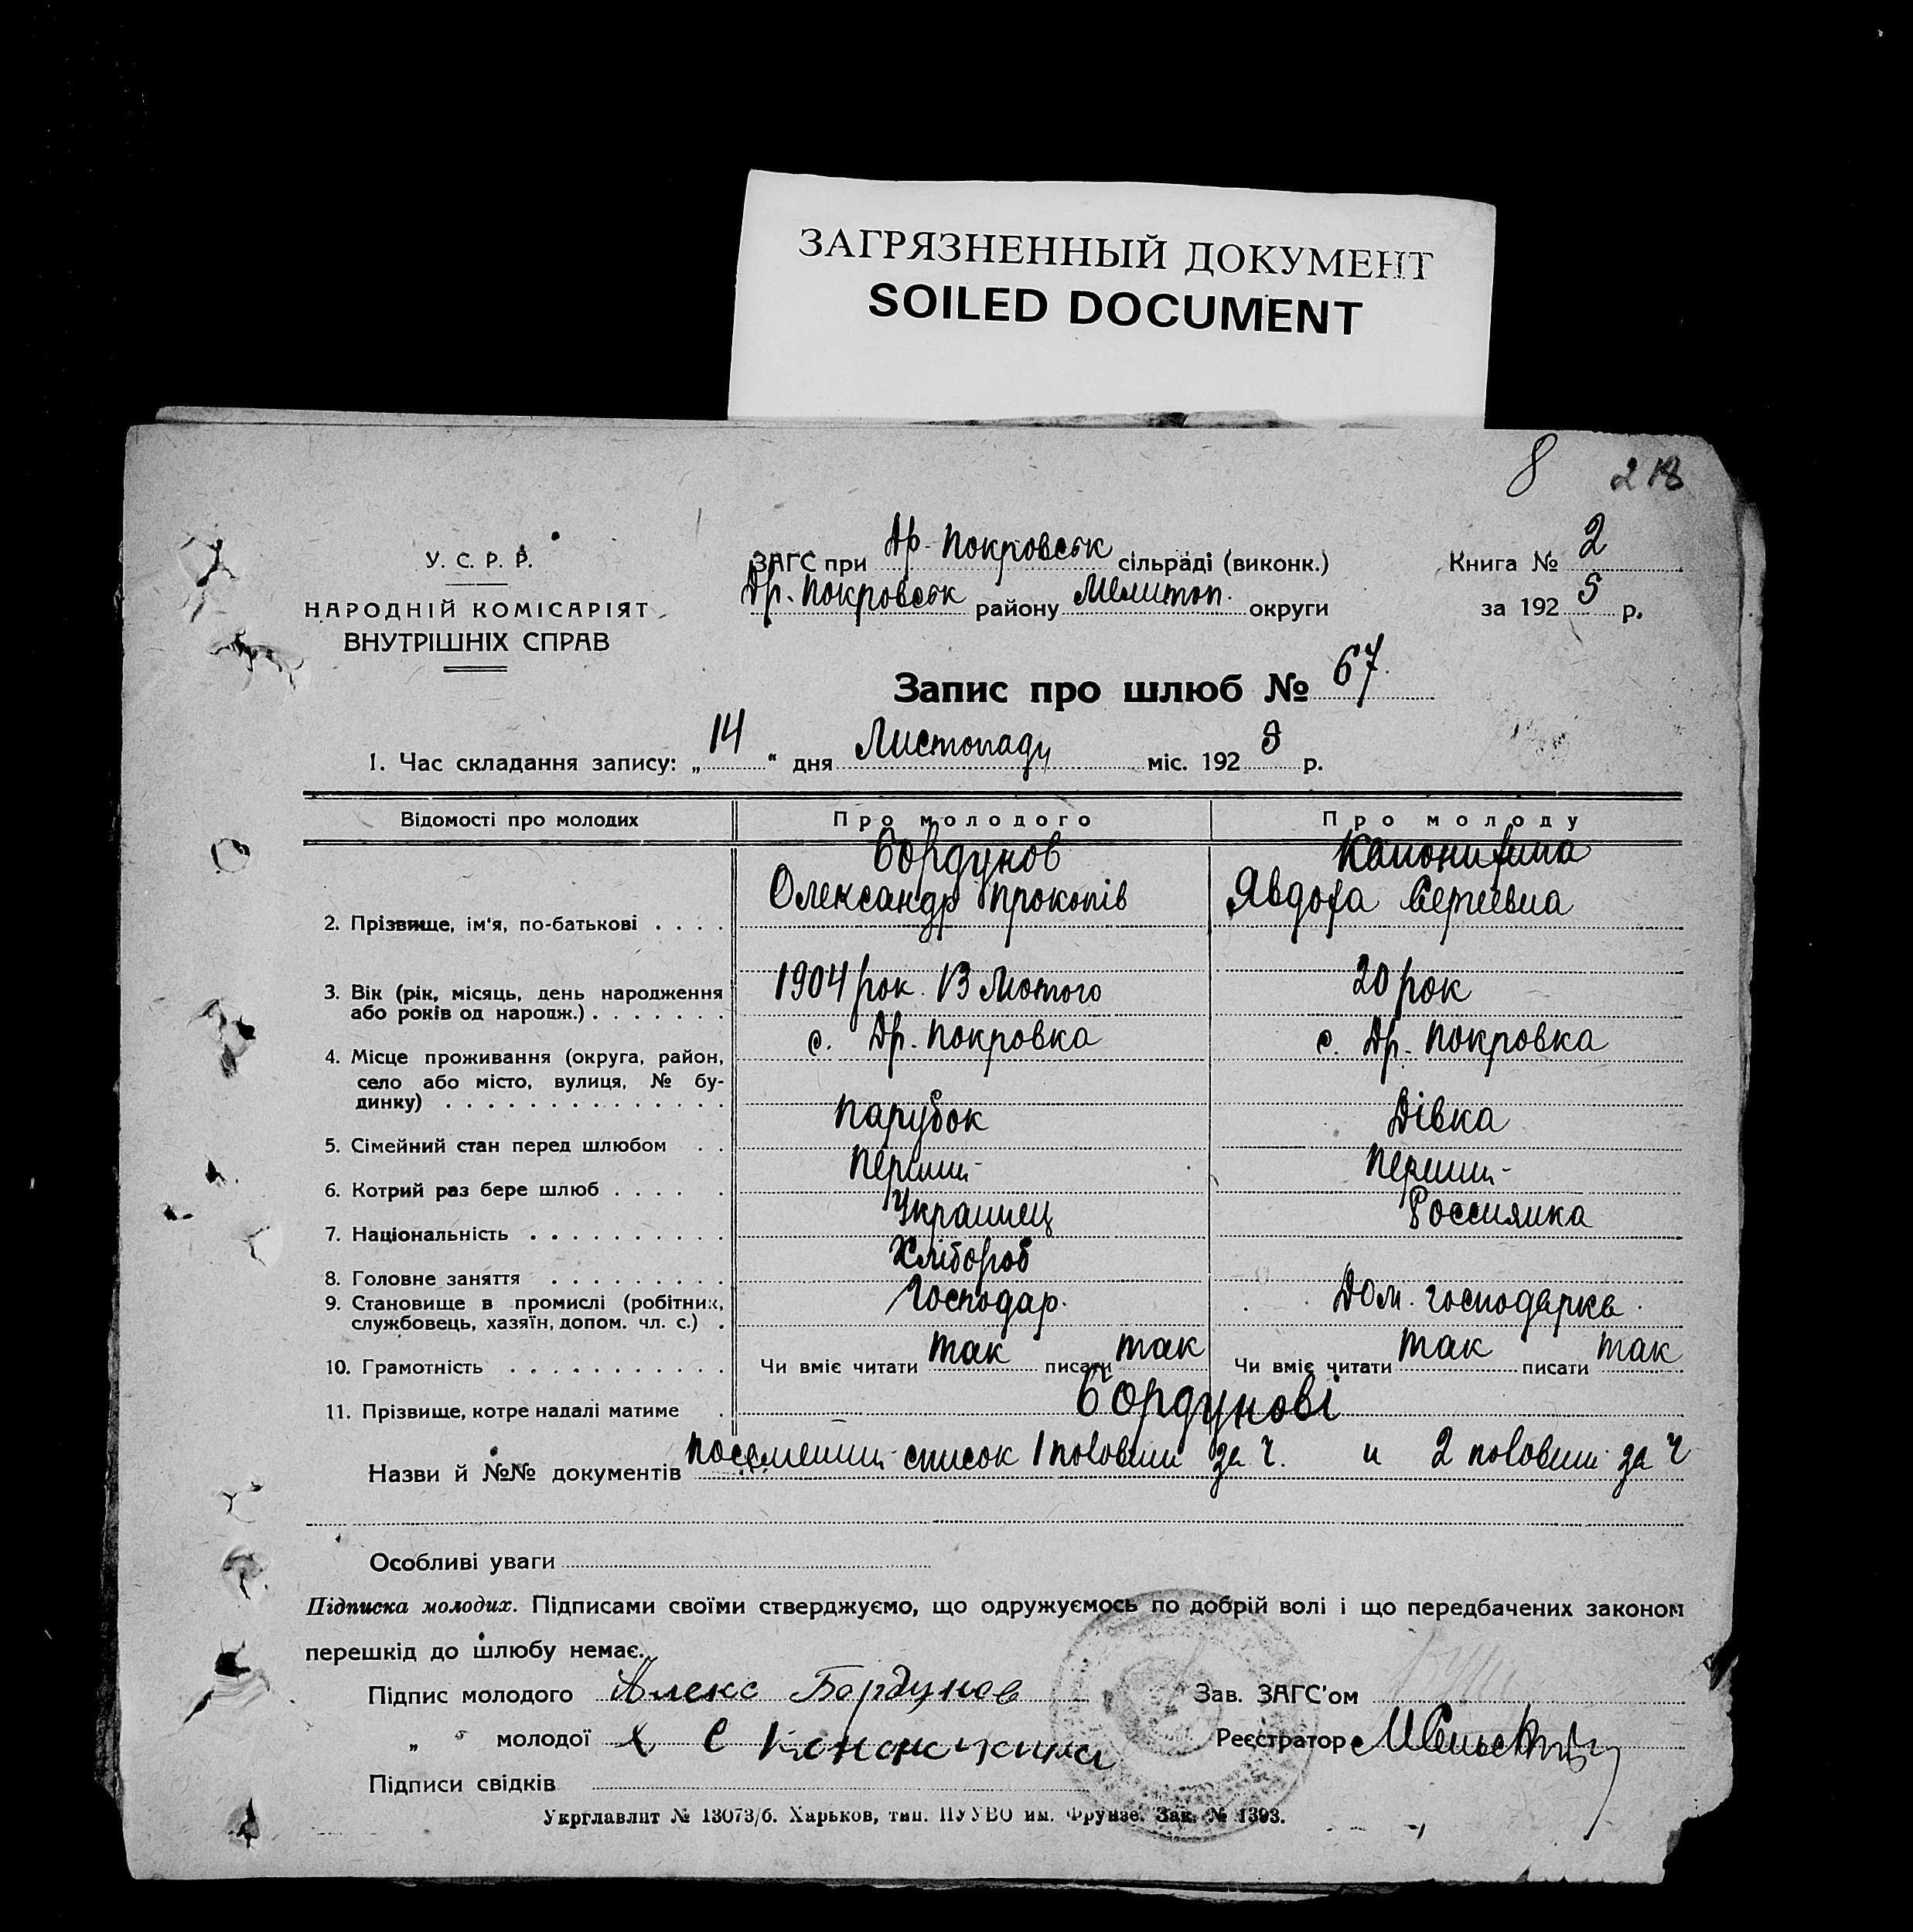 ЗАГРЯЗНЕННЫЙ ДОКУМЕНТ
SOILED DOCUMENT
8 218
У. С. Р. Р.
НАРОДНІЙ КОМІСАРІЯТ
ВНУТРІШНІХ СПРАВ
ЗАГС при Др. Покровськ сільраді (виконк.)
Др. Покровськ району Мелитоп. округи
Книга № 2
за 1925 р.
Запис про шлюб № 67
1. Час складання запису: „14“ дня Листопаду міс. 1925 р.
Відомості про молодих Про молодого Про молоду
Бордунов
2. Прізвище, ім'я, по-батькові . . . . Олександр Прокопів Явдоха Сергеевна
3. Вік (рік, місяць, день народження або років од народж.) . . . . . . . 1904 рок 13 Лютого 20 рок
4. Місце проживання (округа, район, село або місто, вулиця, № будинку) . . . . . . . . . . . . . . с. Др. Покровка с. Др. Покровка
5. Сімейний стан перед шлюбом . . Парубок Дівка
6. Котрий раз бере шлюб . . . . . Перший Перший
7. Національність . . . . . . . . . . Українец Россиянка
8. Головне заняття . . . . . . . . . Хлібороб
9. Становище в промислі (робітник, службовець, хазяїн, допом. чл. с.) . Господар. Дом. господарка.
10. Грамотність . . . . . . . . . . . Чи вміє читати так писати так Чи вміє читати так писати так
11. Прізвище, котре надалі матиме . Бордунові
Назви й №№ документів посемений список 1 половини за ч. и 2 половини за ч
Особливі уваги
Підписка молодих. Підписами своїми стверджуємо, що одружуємось по добрій волі і що передбачених законом
перешкід до шлюбу немає.
Підпис молодого Алекс Бордунов Зав. ЗАГС'ом
„ „ молодої х Є Реєстратор
Підписи свідків
Укрглавліт № 13073/б. Харьков, тип. ПУУВО им. Фрунзе. Зак. № 1393.